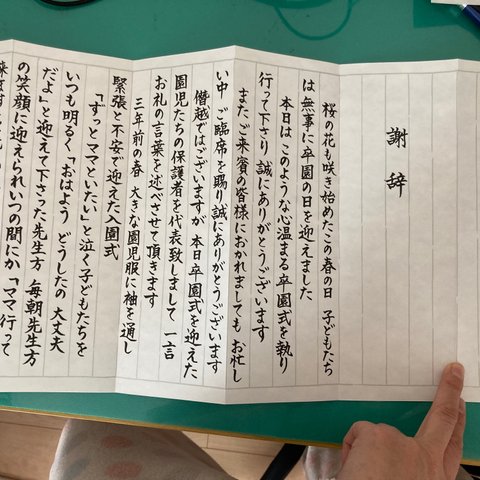 謝辞
桜の花も咲き始めたこの春の日 子どもたち
は無事に卒園の日を迎えました
本日はこのような心温まる卒園式を執り
行って下さり 誠にありがとうございます
またご来賓の皆様におかれましても お忙し
い中 ご臨席を賜り誠にありがとうございます
僭越ではございますが 本日卒園式を迎えた
園児たちの保護者を代表致しまして 一言
お礼の言葉を述べさせて頂きます
三年前の春 大きな園児服に袖を通し
緊張と不安で迎えた入園式
「ずっとママといたい」と泣く子どもたちを
いつも明るく「おはよう どうしたの 大丈夫
だよ」と迎えて下さった先生方 毎朝先生方
の笑顔に迎えられいつの間にか「ママ行って